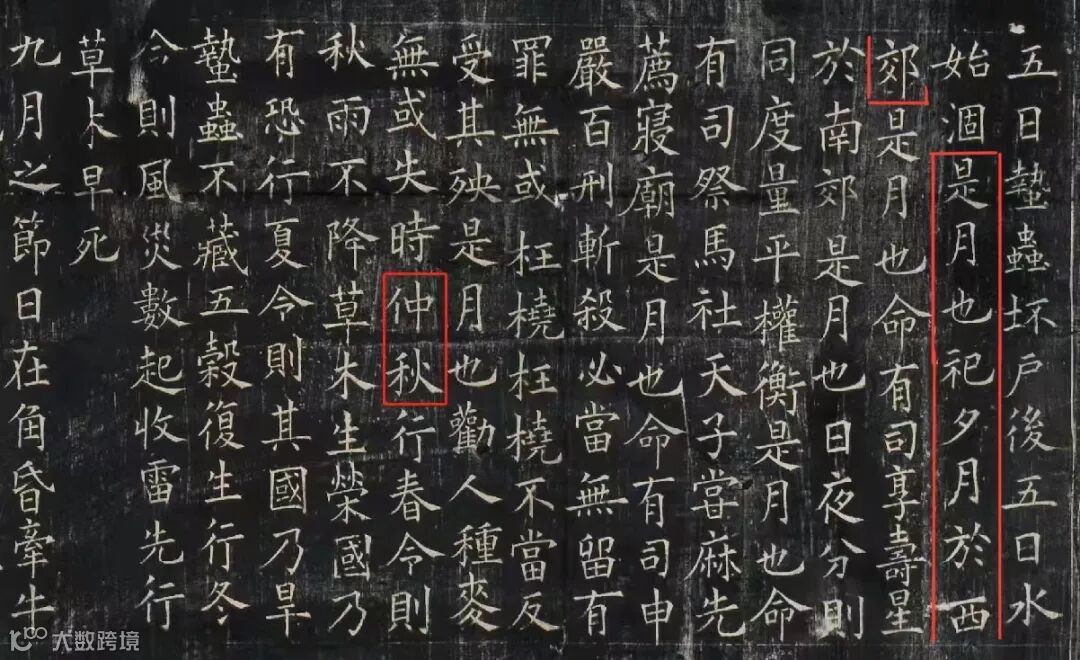 五日蟄蟲坏戸後五日水
始涸是月也祀夕月於西
郊是月也命有司享壽星
於南郊是月也日夜分則
同度量平權衡是月也命
有司祭馬社天子嘗麻先
薦寝廟是月也命有司申
嚴百刑斬殺必當無留有
罪無或枉橈枉橈不當反
受其殃是月也勸人種麥
無或失時仲秋行春令則
秋雨不降草木生榮國乃
有恐行夏令則其國乃旱
蟄蟲不藏五穀復生行冬
令則風災數起收雷先行
草木早死
九月之節日在角昏牽牛
大数跨境